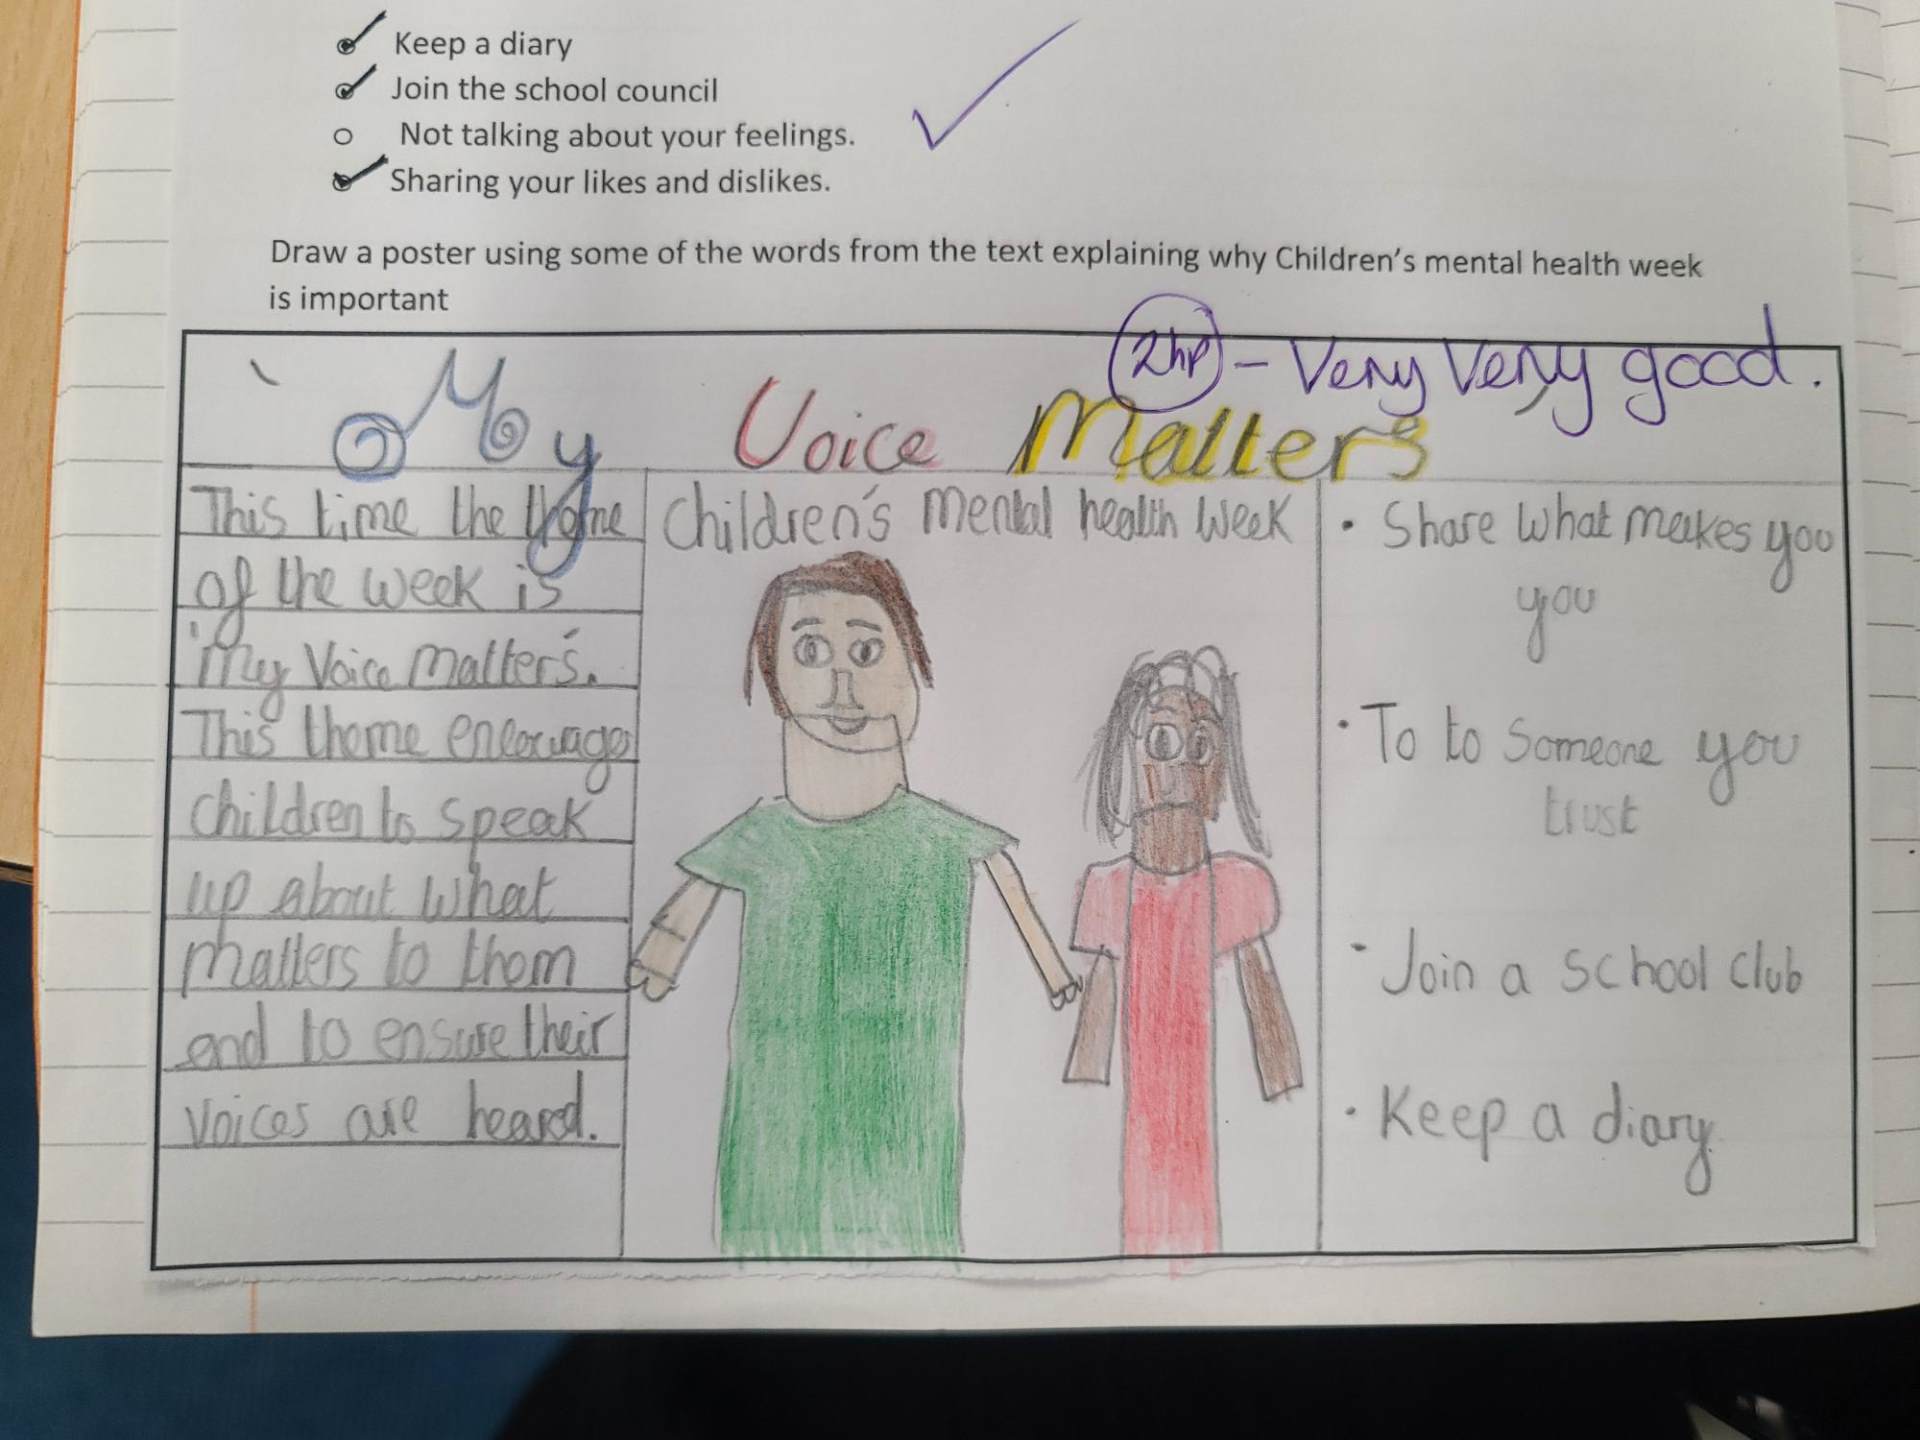 Keep a diary
Join the school council
Not talking about your feelings.
Sharing your likes and dislikes.
Draw a poster using some of the words from the text explaining why Children's mental health week
is important
2hp - Very Very good.
My Voice Matters
This time the theme
of the week is
'My Voice Matters'.
This theme encourages
children to speak
up about what
matters to them
and to ensure their
voices are heard.
Children's mental health week
• Share what makes you
you
• To to someone you
trust
• Join a school club
• Keep a diary.